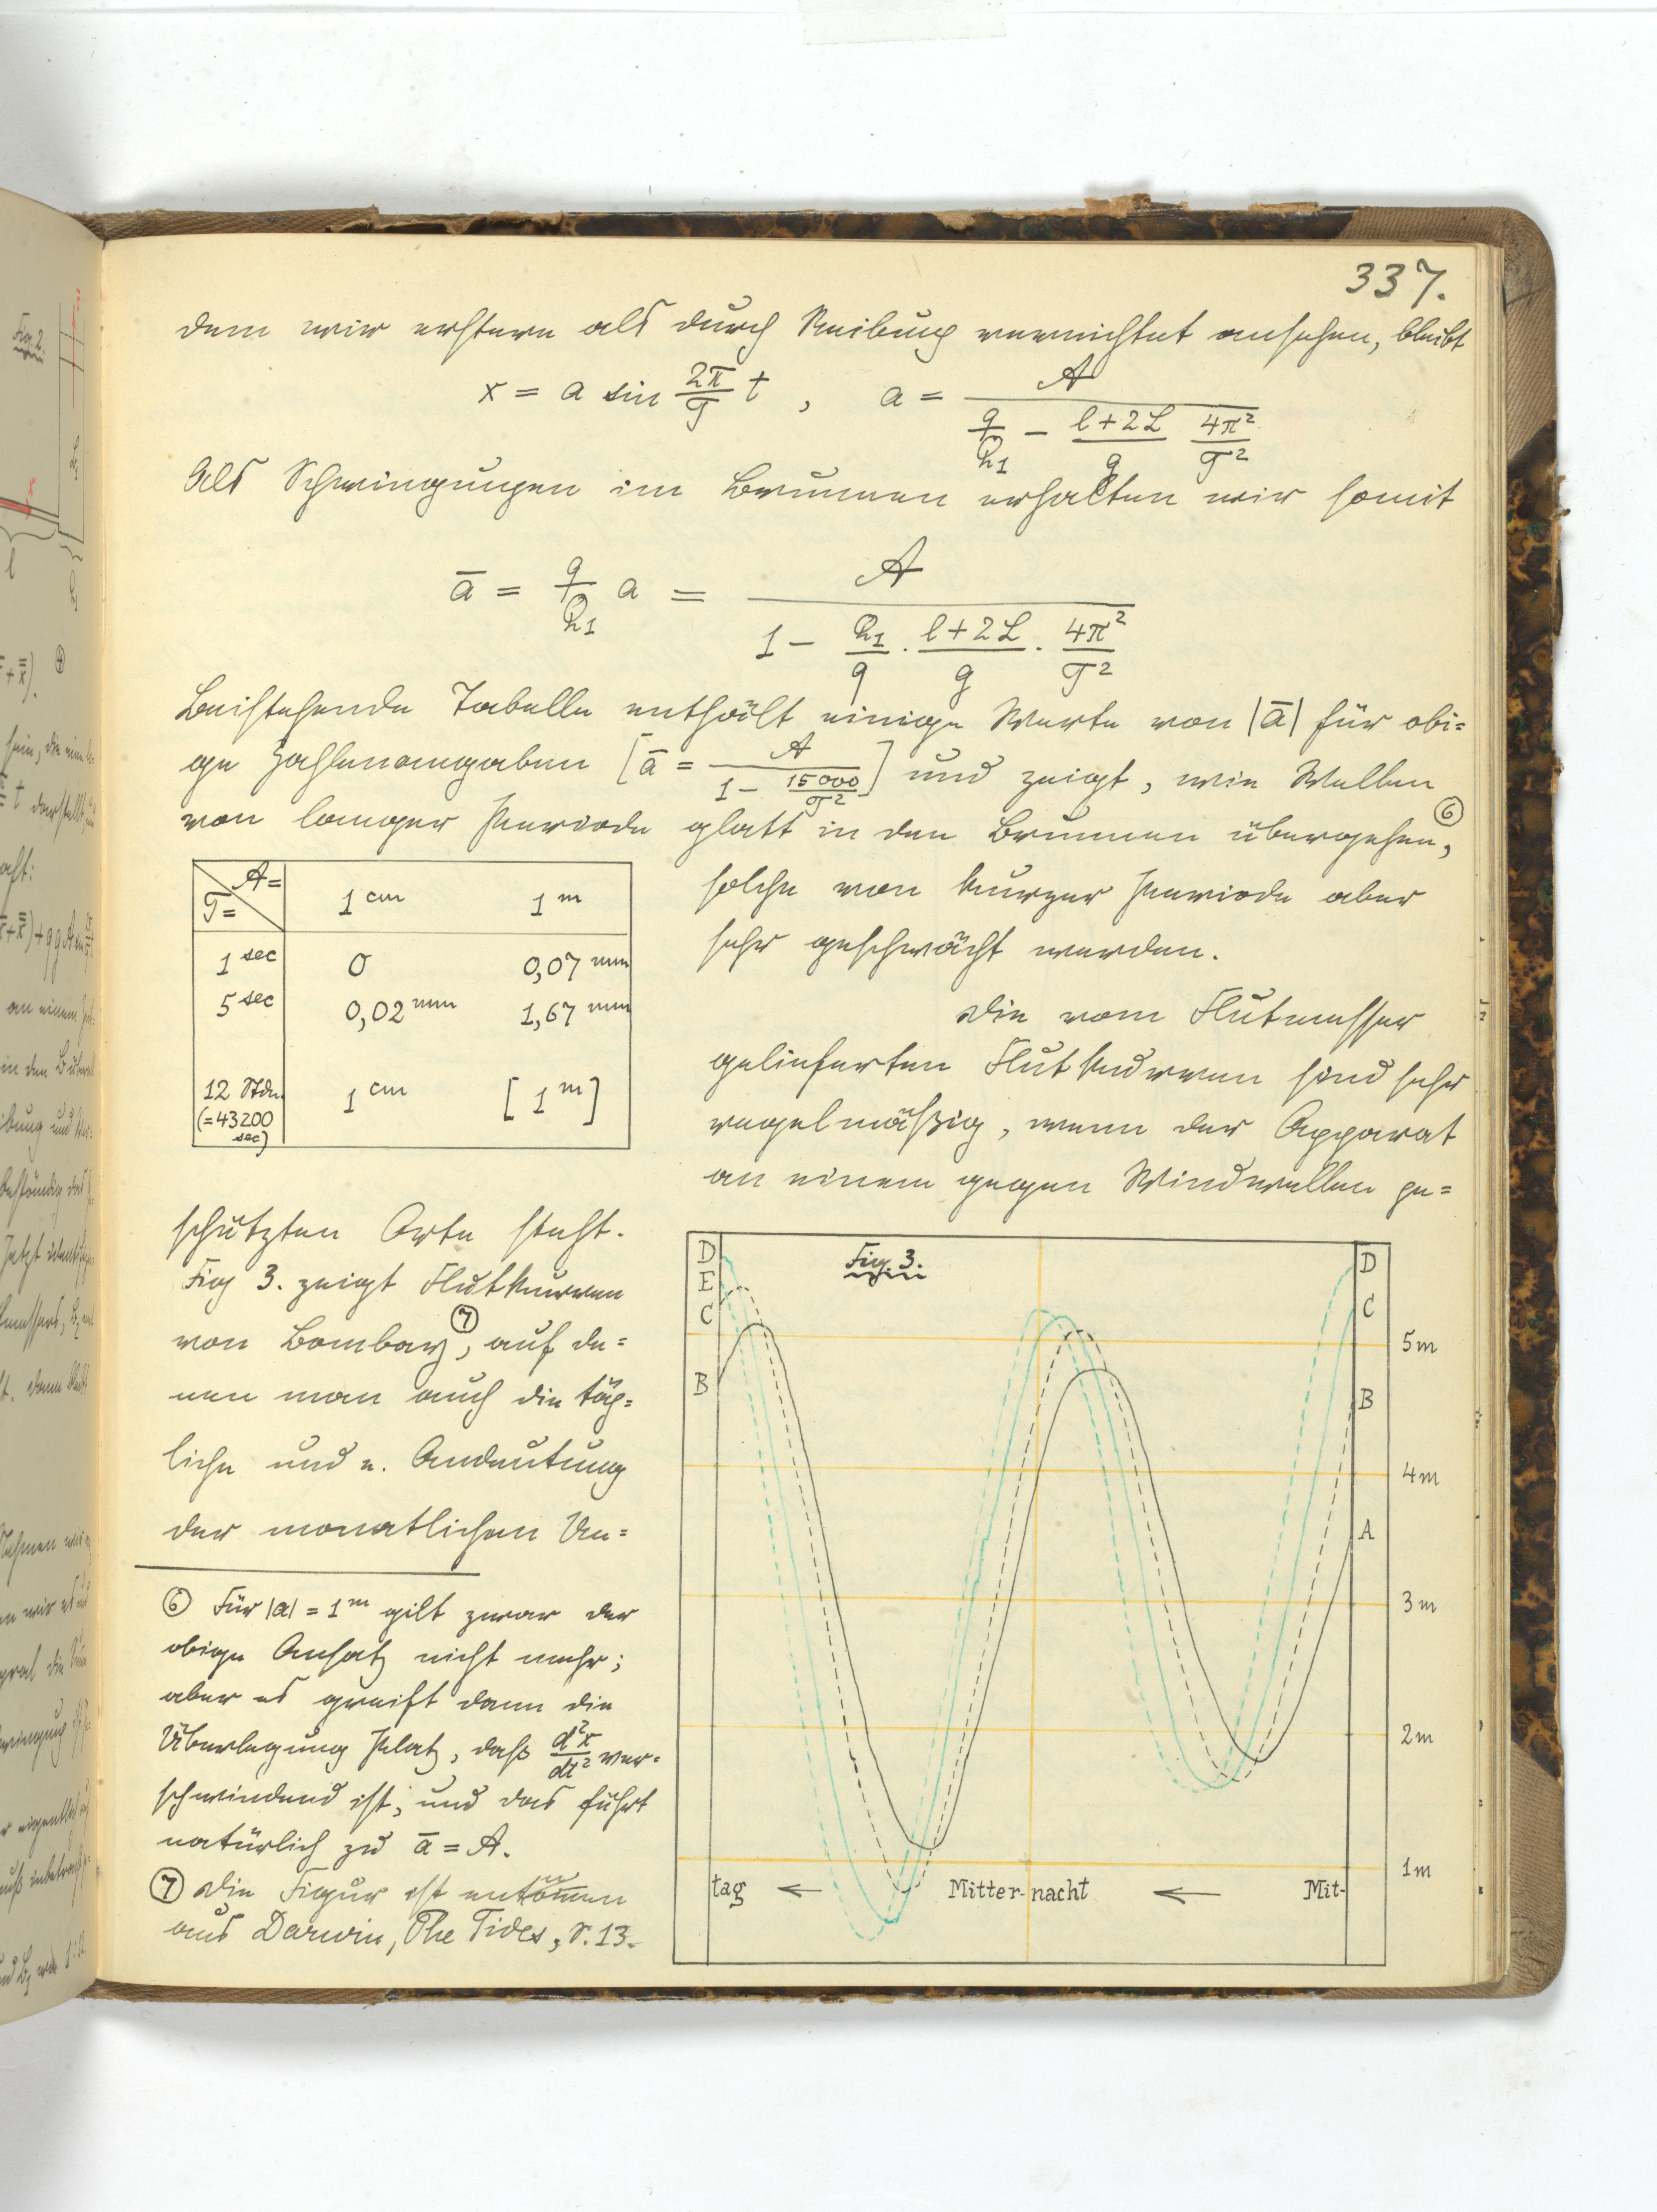 337.
dem wir erstere als durch Reibung vernichtet ansehen, bleibt
x = a sin 2π/T t , a = A / (q/Q₁ − (l+2L)/g 4π²/T²)
Als Schwingungen im Brunnen erhalten wir somit
ā = q/Q₁ a = A / (1 − Q₁/q · (l+2L)/g · 4π²/T²)
Beistehende Tabelle enthält einige Werte von |ā| für obi=
ge Zahlenangaben [ā = A / (1 − 15000/T²)] und zeigt, wie Wellen
von langer Periode glatt in den Brunnen übergehen⑥,
solche von kurzer Periode aber
sehr geschwächt werden.
A= T= 1 cm 1 m
1 sec 0 0,07 mm
5 sec 0,02 mm 1,67 mm
12 Stdn. 1 cm [1 m]
(=43200
sec)
Die vom Flutmesser
gelieferten Flutkurven sind sehr
regelmäßig, wenn der Apparat
an einem gegen Windwellen ge=
schützten Orte steht.
Fig 3. zeigt Flutkurven
von Bombay⑦, auf de=
nen man auch die täg=
liche und e. Andeutung
der monatlichen Un=
⑥ Für |a| = 1 m gilt zwar der
obige Ansatz nicht mehr;
aber es greift dann die
Überlegung Platz, daß d²x/dt² ver=
schwindend ist, und das führt
natürlich zu ā = A.
⑦ Die Figur ist entnomen
aus Darwin, The Tides, S. 13.
Fig. 3.
D
E
C
B
D
C
B
A
5m
4m
3m
2m
1m
tag ← Mitter-nacht ← Mit-
Fig 2.
l